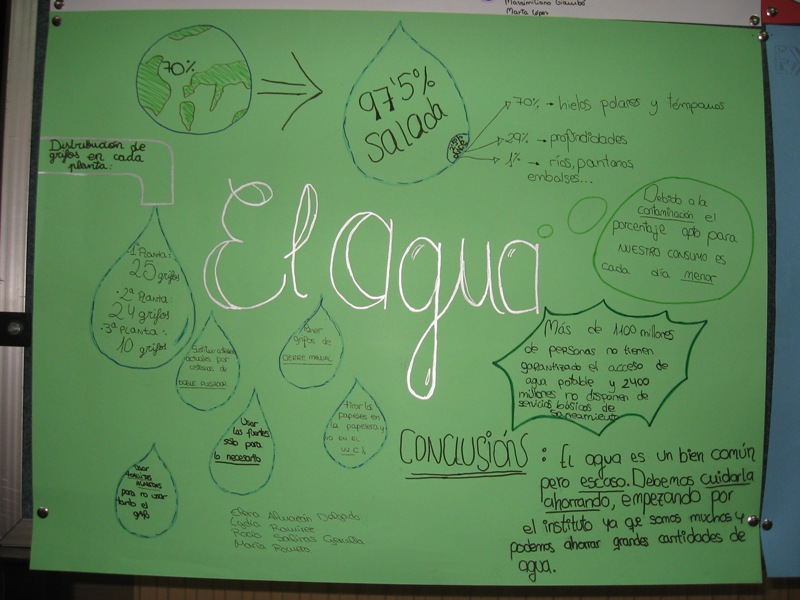 Massimiliano Giambó
Marta López
70%
97'5%
salada
2'5%
dulce
70% → hielos polares y témpanos
29% → profundidades
1% → ríos, pantanos
embalses...
Distribución de
grifos en cada
planta:
1ª Planta:
25 grifos
2ª Planta:
24 grifos
3ª Planta:
10 grifos
El agua
Debido a la
contaminación el
porcentaje apto para
NUESTRO CONSUMO ES
cada día menor
Más de 1100 millones
de personas no tienen
garantizado el acceso de
agua potable y 2400
millones no disponen de
servicios básicos de
saneamiento
Usar
grifos de
CIERRE MANUAL
actuales por
cisternas de
DOBLE PULSADOR
Usar
las fuentes
sólo para
lo necesario
Tirar los
papeles en
la papelera y
no en el
W.C.
Usar
para no usar
tanto el
grifo
CONCLUSIÓN: El agua es un bien común
pero escaso. Debemos cuidarla
ahorrando, empezando por
el instituto ya que somos muchos y
podemos ahorrar grandes cantidades de
agua.
Delgado
Lydia Ramírez
Rocío
María